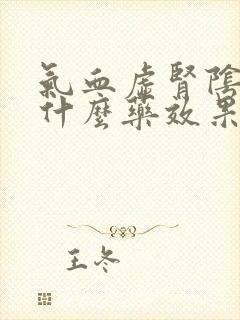 氣血虛腎陰
什麼藥效果
王冬